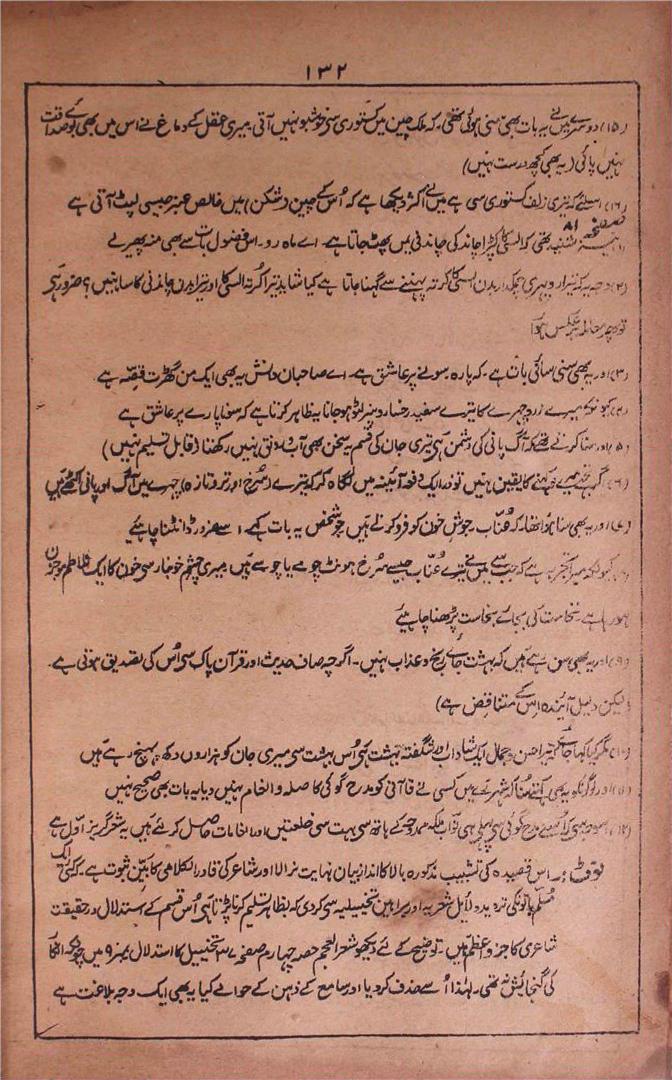 ۱۳۲
(۱۵) دوسرے میں نے یہ بات بھی سنی ہوئی تھی۔ کہ ملک چین میں کستوری سی خوشبو نہیں آتی۔ میری عقل کے دماغ نے اس میں بھی بوئے صداقت
نہیں پائی (یہ بھی کچھ درست نہیں)
(۱۶) اسلئے کہ تیری زلف کستوری سی ہے میں نے اکثر دیکھا ہے کہ اُس کے چین (شکن) میں خالص عنبر جیسی لپٹ آتی ہے
صفحہ ۸۱
(۱) کہ السی کا کپڑا چاند کی چاندنی میں پھٹ جاتا ہے۔ اے ماہ رو۔ اس فضول بات سے بھی منہ پھیر لے
(۲) وجہ یہ کہ تیرا روپہری چمکدار بدن السی کا کرتہ پہننے سے گہنا جاتا ہے کیا شاید تیرا کُرتہ السی کا اور تیرا بدن چاندنی کا سا نہیں؟ ضرور ہی
تو پھر معاملہ برعکس ہوا
(۳) اور یہ بھی سنی سنائی بات ہے۔ کہ پارہ سونے پر عاشق ہے۔ اے صاحبانِ دانش یہ بھی ایک من گھڑت قصہ ہے
(۴) کیونکہ میرے زرد چہرے کا تیرے سفید رخسار پر لٹو ہو جانا یہ ظاہر کرتا ہے کہ سونا پارے پر عاشق ہے
(۵) اور سنا کرتے تھے کہ آگ پانی کی دشمن ہی تیری جان کی قسم یہ سخن بھی آب و رونق نہیں رکھتا (قابل تسلیم نہیں)
(۶) گر تجھے میرے کہنے کا یقین نہیں تو ذرا ایک دفعہ آئینہ میں نگاہ کر کہ تیرے (سُرخ اور تر و تازہ) چہرے میں آگ اور پانی اکٹھے ہیں
(۷) اور یہ بھی سنا ہوا تھا۔ کہ عُنّاب۔ جوشِ خون کو فرو کرتے ہیں جو شخص یہ بات کہے۔ اسے ضرور ڈانٹنا چاہئیے
(۸) کیونکہ میرا تجربہ ہے کہ جب سے میں نے تیرے عُنّاب جیسے سُرخ ہونٹ چومے یا چوسے ہیں۔ میری چشم خونبار سی خون کا ایک قلزم موجزن
ہو رہا ہے۔ نخاست کی بجائے بخاست پڑھنا چاہئیے
(۹) اور یہ بھی سن رہے ہیں کہ بہشت جائے رنج و عذاب نہیں۔ اگرچہ صاف حدیث اور قرآن پاک سی اُس کی تصدیق ہوتی ہے۔
(لیکن دلیل آئندہ اس کے متناقض ہے)
(۱۰) مگر کیا کہا جائے تیرا حسن و جمال ایک شاداب اور شگفتہ بہشت ہی اُس بہشت سی میری جان کو ہزاروں دکھ پہنچ رہے ہیں
(۱۱) اور لوگونکو یہ بھی کہتے سُنا کہ شہر بھر میں کسی نے قاآنی کو مدح گوئی کا صلہ و انعام نہیں دیا یہ بات بھی صحیح نہیں
(۱۲) مدح گوئی سی پہلے ہی نواب ملکہ ممدوحہ کے ہاتھ سی بہت سی خلعتیں اور انعامات حاصل کر لئے ہیں یہ شعر گریز اوّل ہے
نوٹ :۔ اس قصیدہ کی تشبیب مذکورہ بالا کا انداز بیان نہایت نرالا اور شاعر کی قادر الکلامی کا بیّن ثبوت ہے۔ کئی ایک
مسلّم باتونکی تردید دلائل شعریہ اور براہین تخیلیہ سی کر دی کہ بظاہر تسلیم کرنا پڑتا ہی اُس قسم کے استدلال درحقیقت
شاعری کا جزو اعظم ہیں۔ توضیح کے لئے دیکھو شعر العجم حصہ چہارم صفحہ ۳۷ تخییل کا استدلال نمبر ۹ میں چونکہ
کی گنجائش نہ تھی۔ لہٰذا اُسے حذف کر دیا اور سامع کے ذہن کے حوالے کیا یہ بھی ایک وجہ بلاغت ہے